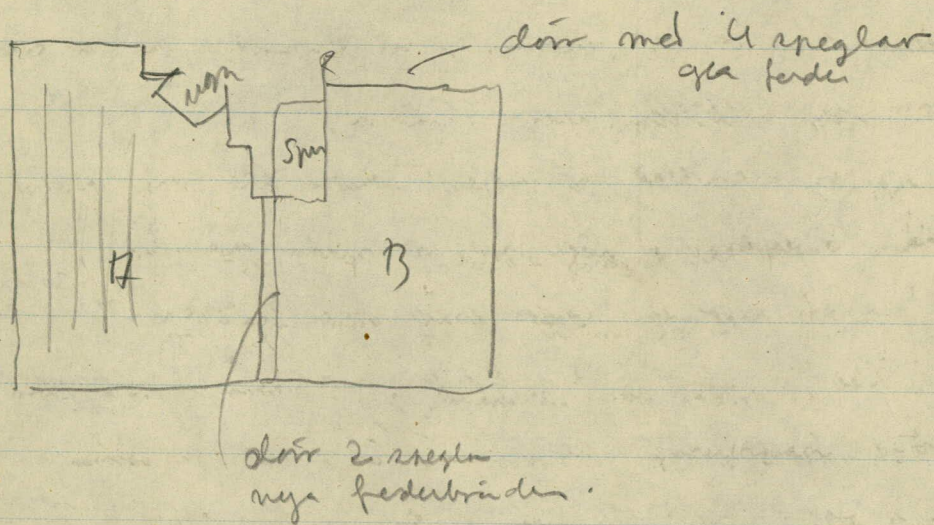 dörr med 4 speglar
gla foder
ugn
Spis
A
B
dörr 2 speglar
nya foderbräden.